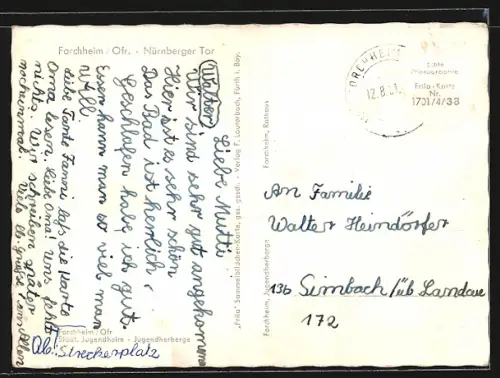 Forchheim / Ofr. - Nürnberger Tor
Walter
Liebe Mutti
Wir sind sehr gut angekommen
Hier ist es sehr schön
Das Bad ist herrlich.
Geschlafen habe ich gut.
Essen kann man so viel man
will.
Liebe Tante Fannzi laß die Karte
Oma lesen. Liebe Oma! Uns fehlt
nichts. Wir schreiben später
nocheinmal. Viele lb. Grüße
Forchheim / Ofr
Staatl. Jugendheim - Jugendherberge
Abs: Streckerplatz
"Frila" Sammelbilder-Karte, ges. gesch. - Verlag F. Lauterbach, Fürth i. Bay.
Forchheim, Rathaus
Forchheim, Jugendherberge
FORCHHEIM
12.8.
Echte
Photographie
Frila-Karte
Nr.
1701/4/38
An Familie
Walter Heindörfer
13b Simbach/üb Landau
172